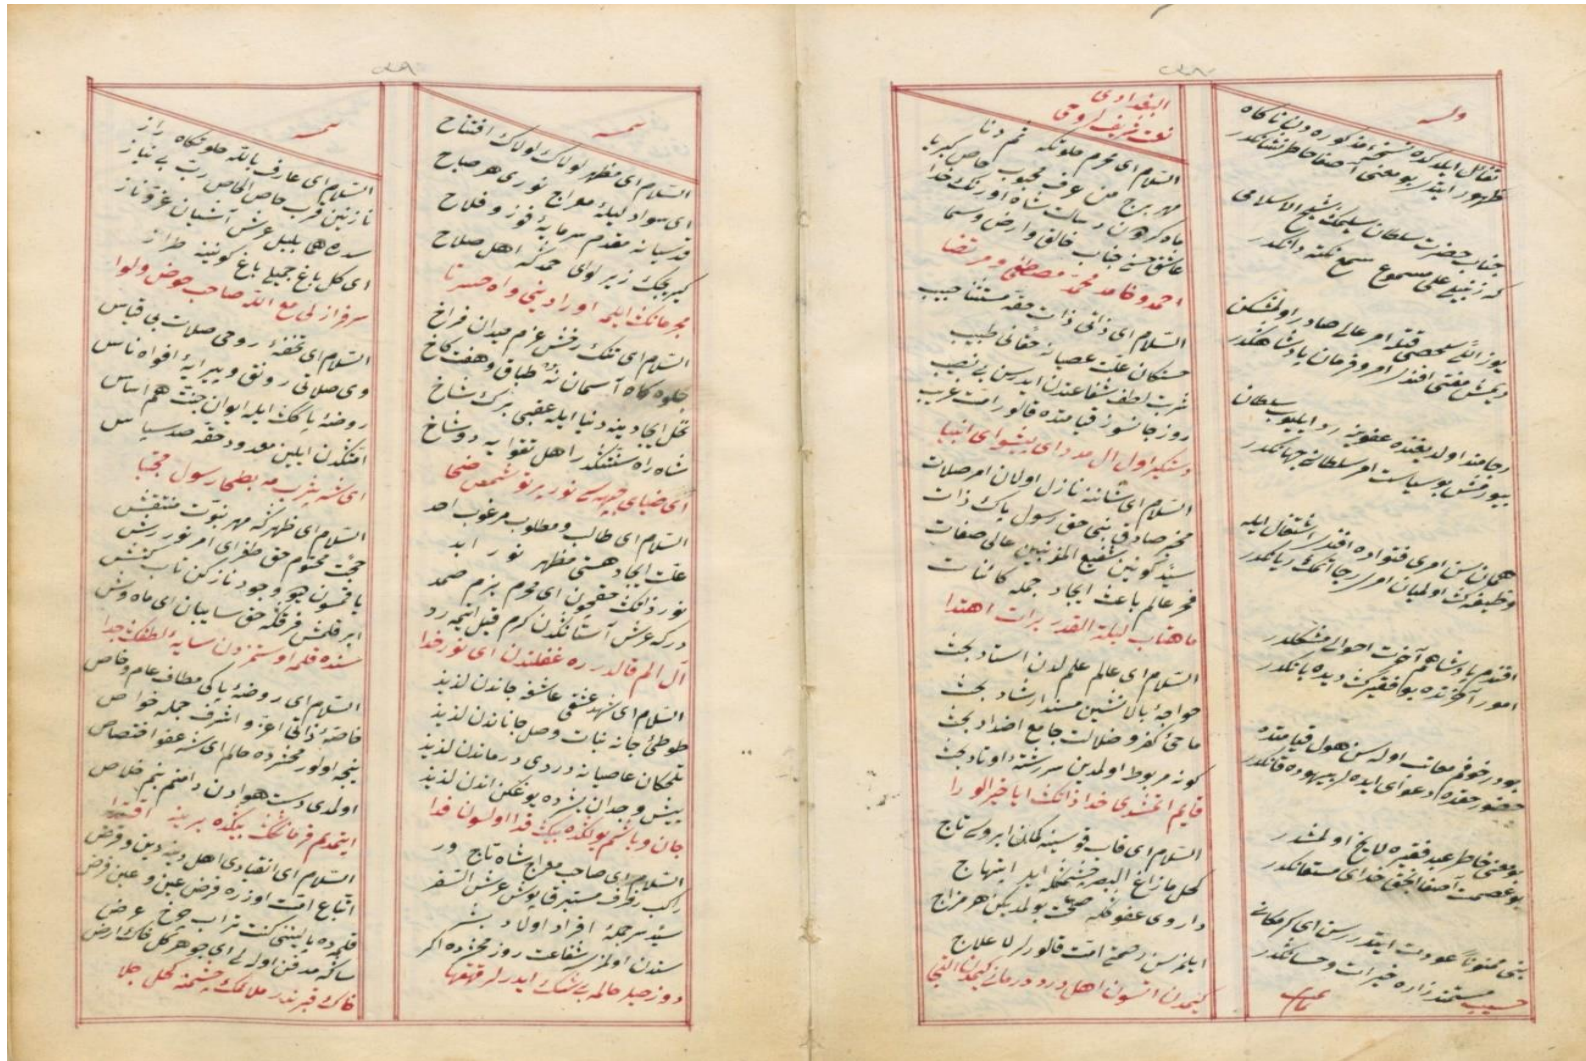 وله
تفأل ایلدکده نسخهٔ مذکوره دن ناکاه
ظهور ایتدی بو معنی آصفا خاطر نشانکدر
جناب حضرت سلطان سلیمانک شیخ الاسلامی
که زنبیلی علی مسموع سمع نکته دانکدر
یوز اللی سلحصی قتله امر عالی صادر اولمشکن
دیمش مفتی افندی امر و فرمان پادشاهکدر
رجامند اولدیغنده عفوینه رد ایلیوب سلطان
بیورمش بو سیاست امر سلطانی جهانکدر
همان سن امری فتواده افندی اشتغال ایله
وظیفه ک اولمیان امری رجا ایتمک زیانکدر
افندم پادشاهم آخرت احوالی مشکلدر
امور آخرتده بو فقیرک دیده بانکدر
بودر خوفم معاتب اوله سن هول قیامتده
حضور حقده دعوای ایده لر بیهوده قانکدر
بو معنی خاطر عبد فقیره لایح اولمشدر
بو عصمت آصفا انجق خدای مستعانکدر
بنی ممنوناً عودت ایتدررسن ای کرمکانی
حسیب مستمندزاره خیرات و حسانکدر
تمام
البغدادی
نعت شریف روحی
السلام ای محرم خلوتکه ثم دنا
مهر برج من عرف محبوب خاص کبریا
ماه کردون رسالت شاه اورنک خدا
عاشق حسنی جناب خالق وارض و سما
احمد و حامد محمد مصطفی و مرتضا
السلام ای ذاتی ذات حقه مستثنا حبیب
خستکان علت عصیانه حقانی طبیب
شربت لطف شفاعتدن ایدرسن بی نصیب
روز جانسوز قیامتده قالور امت غریب
دستکیر اول ال مدد ای پیشوای انبیا
السلام ای شاننه نازل اولان امر صلات
مخبر صادق نبی حق رسول پاک ذات
سید کونین شفیع المذنبین عالی صفات
فخر عالم باعث ایجاد جمله کائنات
ماهتاب لیلة القدر برات اهتدا
السلام ای عالم علم لدن استاد بحث
خواجهٔ بالا نشین مسند ارشاد بحث
ماحئ کفر و ضلالت جامع اضداد بحث
کونه مربوط اولمدین سررشتهٔ اوتاد بحث
قایم ایتمشدی خدا ذاتک ایا خیرالورا
السلام ای قاب قوسینه کمان ابروی تاج
کحل مازاغ البصر چشمکله ایدر ابتهاج
داروی عفوکله صحت بولمدیکن هر مزاج
ایلمزسن صحت امت قالورلر لا علاج
کیمدن ایستسون اهل درد درمانی کیمدن التجا
٤٨
تتمه
السلام ای مظهر لولاک لولاک افتتاح
ای سواد لیلهٔ معراج نوری هر صباح
قدسیانه مقدم سرمایهٔ فوز و فلاح
کیرمجک زیر لوای حمدکه اهل صلاح
مجرمانک ایلمه اورادینی واه حسرتا
السلام ای تنک رخش عزم میدان فراخ
جلوه کاه آسمان نه طباق و هفت کاخ
نخل ایجادینه دنیا ایله عقبی برک شاخ
شاهراه سنتکدر اهل تقوایه دوشاخ
ای ضیای چهره سی نور پرتو شمس ضحا
السلام ای طالب و مطلوب مرغوب احد
علت ایجاد هستی مظهر نور ابد
نور ذاتک حقیچون ای محرم بزم صمد
درکه عرش آستانکدن کرم قیل ایتمه رد
آل الم قالدر ره غفلتدن ای نور خدا
السلام ای شهد عشقی عاشقه جاندن لذیذ
طوطئ جانه نبات وصل جاناندن لذیذ
تلخکان عاصیانه دردی درماندن لذیذ
بینش وجدان بشرده یوغیکن اندن لذیذ
جان و باشم یولکده بیک فدا اولسون فدا
السلام ای صاحب معراج شاه تاجور
راکب رفرف مستبر قاپوش عرش السفر
سید سرجملهٔ افراد اولاد بشر
سندن اولمز شفاعت روز محشرده اکر
دوزخیلر حالمه بی شک ایدرلر قهقها
تتمه
السلام ای عارف بالله خلوتکاه راز
نازنین قرب خاص الخاص رب بی نیاز
سدره همی بلبل عرش آشیان عز و ناز
ای کل باغ جمیلی باغ کونینه طراز
سرفراز لی مع الله صاحب حوض و لوا
السلام ای تحفهٔ روحی صلات بی قیاس
وی صلاتی رونق و پیرایهٔ افواه ناس
روضهٔ پاکک ایله ایوان جنت هم اساس
امتکدن ایلین معدود حقه صد سپاس
ای شه یثرب مه بطحا رسول مجتبا
السلام ای ظهرکه مهر نبوت منتقش
حجت مختوم حق طغرای امر نور رش
یاقمسون هو وجود نازکن تاب کنش
ابر قلمش فرقکه حق سایبان ای ماه وش
سنده قلمه اوستمزدن سایهٔ لطفک جدا
السلام ای روضهٔ پاکی مطاف عام و خاص
خاصهٔ ذاتی اعز و اشرف جمله خواص
نیجه اولور محشرده حالم ای شه عفو اختصاص
اولمدی دست هوادن دامنم بنم خلاص
ایتمدم فرمانکک بیکده برینه اقتدا
السلام ای انقیادی اهل دینه دین و قرض
اتباع امت اوزره فرض عین و عین فرض
قلمده یالیتنی کنت تراب چرخ عرض
ساکه مدفن اولدی ای جوهر کل خاک ارض
خاک قبرندر ملائک چشمنه کحل جلا